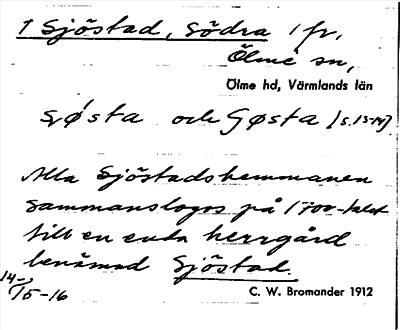 1 Sjöstad, Södra 1 fr,
Ölme sn,
Ölme hd, Värmlands län
sjøsta och Gøsta (s. 13-14)
Alla Sjöstadshemmanen
sammanslogos på 1700-talet
till en enda herrgård
benämnd Sjöstad.
14-,
15-16
C. W. Bromander 1912